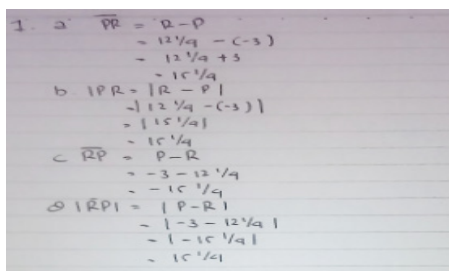 1. a PR = R - P
= 12 1/4 - (-3)
= 12 1/4 + 3
= 15 1/4
b. |PR = |R - P|
= |12 1/4 - (-3)|
= |15 1/4|
= 15 1/4
c RP = P - R
= -3 - 12 1/4
= -15 1/4
d |RP| = |P - R|
= |-3 - 12 1/4|
= |-15 1/4|
= 15 1/4